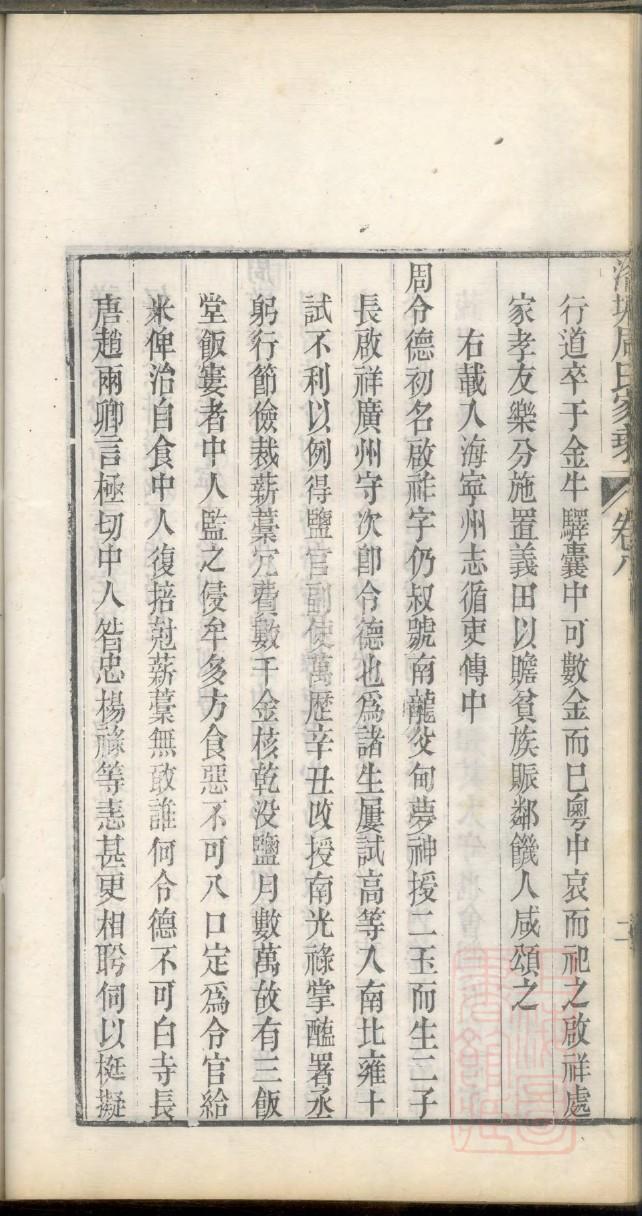 周氏家乘 卷八
行道卒于金牛驛囊中可數金而已粵中哀而祀之啟祥處
家孝友樂分施置義田以贍貧族賑鄰饑人咸頌之
右載入海寧州志循吏傳中
周令德初名啟祚字仍叔號南龍父甸夢神授二玉而生二子
長啟祥廣州守次卽令德也爲諸生屢試高等入南北雍十
試不利以例得鹽官副使萬歷辛丑改授南光祿掌醢署丞
躬行節儉裁薪藁冗費數千金核乾没鹽月數萬故有三飯
堂飯寠者中人監之侵牟多方食惡不可入口定爲令官給
米俾治自食中人復掊尅薪藁無敢誰何令德不可白寺長
唐趙兩卿言極切中人咎忠楊祿等恚甚更相盻伺以梃擬